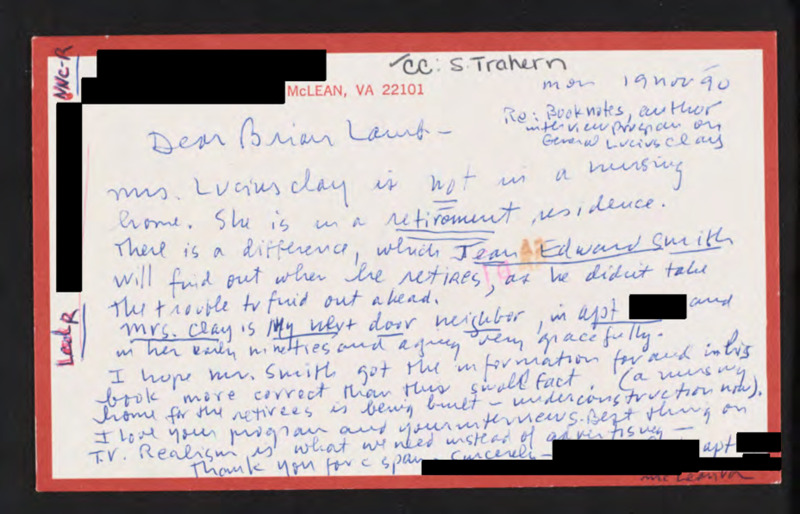 NNC-R
✓CC: S. Trahern
McLEAN, VA 22101
mon 19 nov 90
Re: Booknotes, author
interview program on
General Lucius Clay
Dear Brian Lamb -
Mrs. Lucius Clay is not in a nursing
home. She is in a retirement residence.
There is a difference, which Jean Edward Smith
will find out when he retires, as he didn't take
the trouble to find out ahead.
Mrs. Clay is my next door neighbor, in apt and
in her early nineties and aging very gracefully.
I hope Mr. Smith got the information for and in his
book more correct than this small fact (a nursing
home for the retirees is being built - under construction now).
I love your program and your interviews. Best thing on
T.V. Realism is what we need instead of advertising -
Thank you for c span. Sincerely - apt
McLean Va